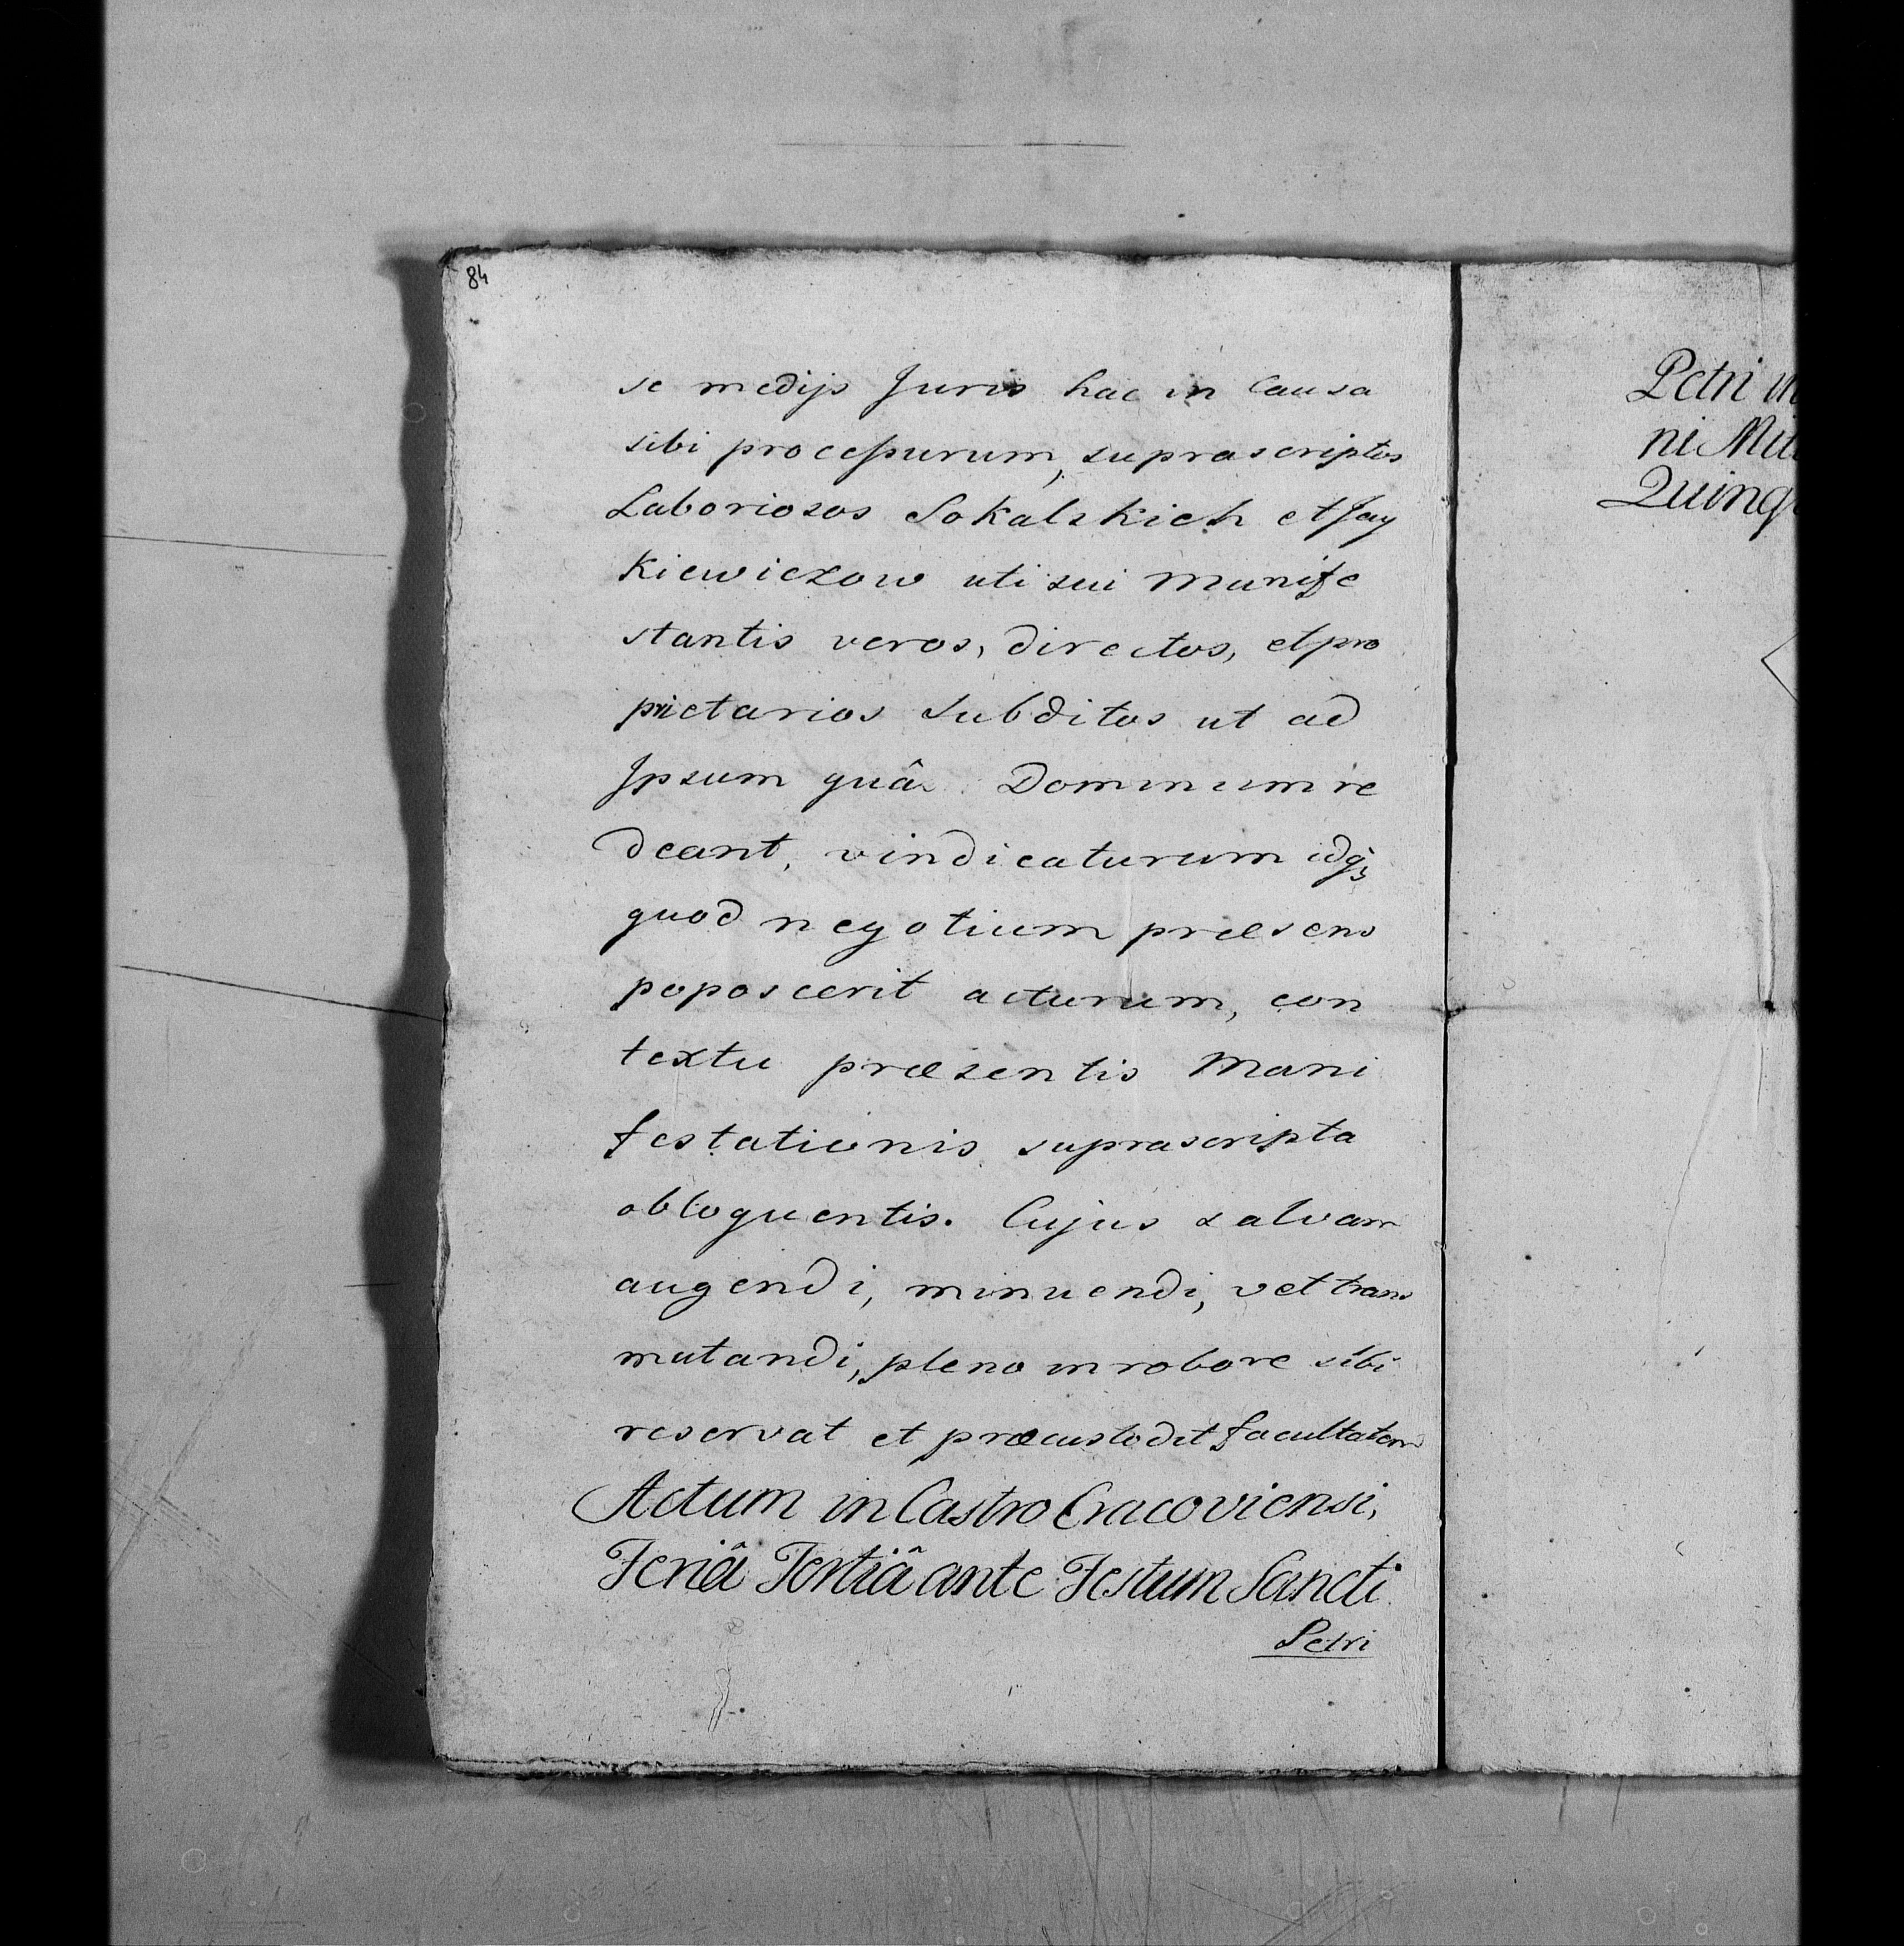 84
se medijs Juris hac in Causa
sibi processurum, suprascriptos
Laboriosos Sokalskich et Jay
kiewiczow uti sui Manife
stantis veros, directos, et pro
prietarios subditos ut ad
Ipsum quâ Dominum re
deant, vindicaturum idq3
quod negotium præsens
poposcerit acturum, con
textu præsentis Mani
festationis suprascripta
obloquentis. Cujus salvam
augendi, minuendi, vel trans
mutandi, pleno in robore sibi
reservat et præcustodit facultatem
Actum in Castro Cracoviensi,
Feriâ Tertiâ ante Festum Sancti
Petri
Petri
ni